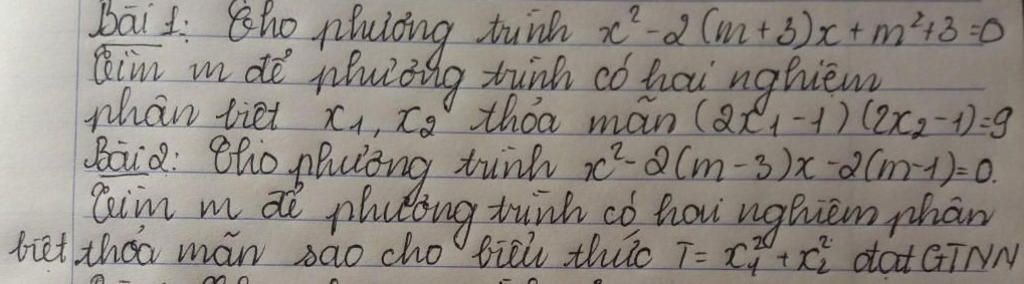 Bài 1: Cho phương trình x² - 2(m+3)x + m² + 3 = 0
Tìm m để phương trình có hai nghiệm
phân biệt x₁, x₂ thỏa mãn (2x₁ - 1)(2x₂ - 1) = 9
Bài 2: Cho phương trình x² - 2(m - 3)x - 2(m - 1) = 0.
Tìm m để phương trình có hai nghiệm phân
biệt thỏa mãn sao cho biểu thức T = x₁² + x₂² đạt GTNN